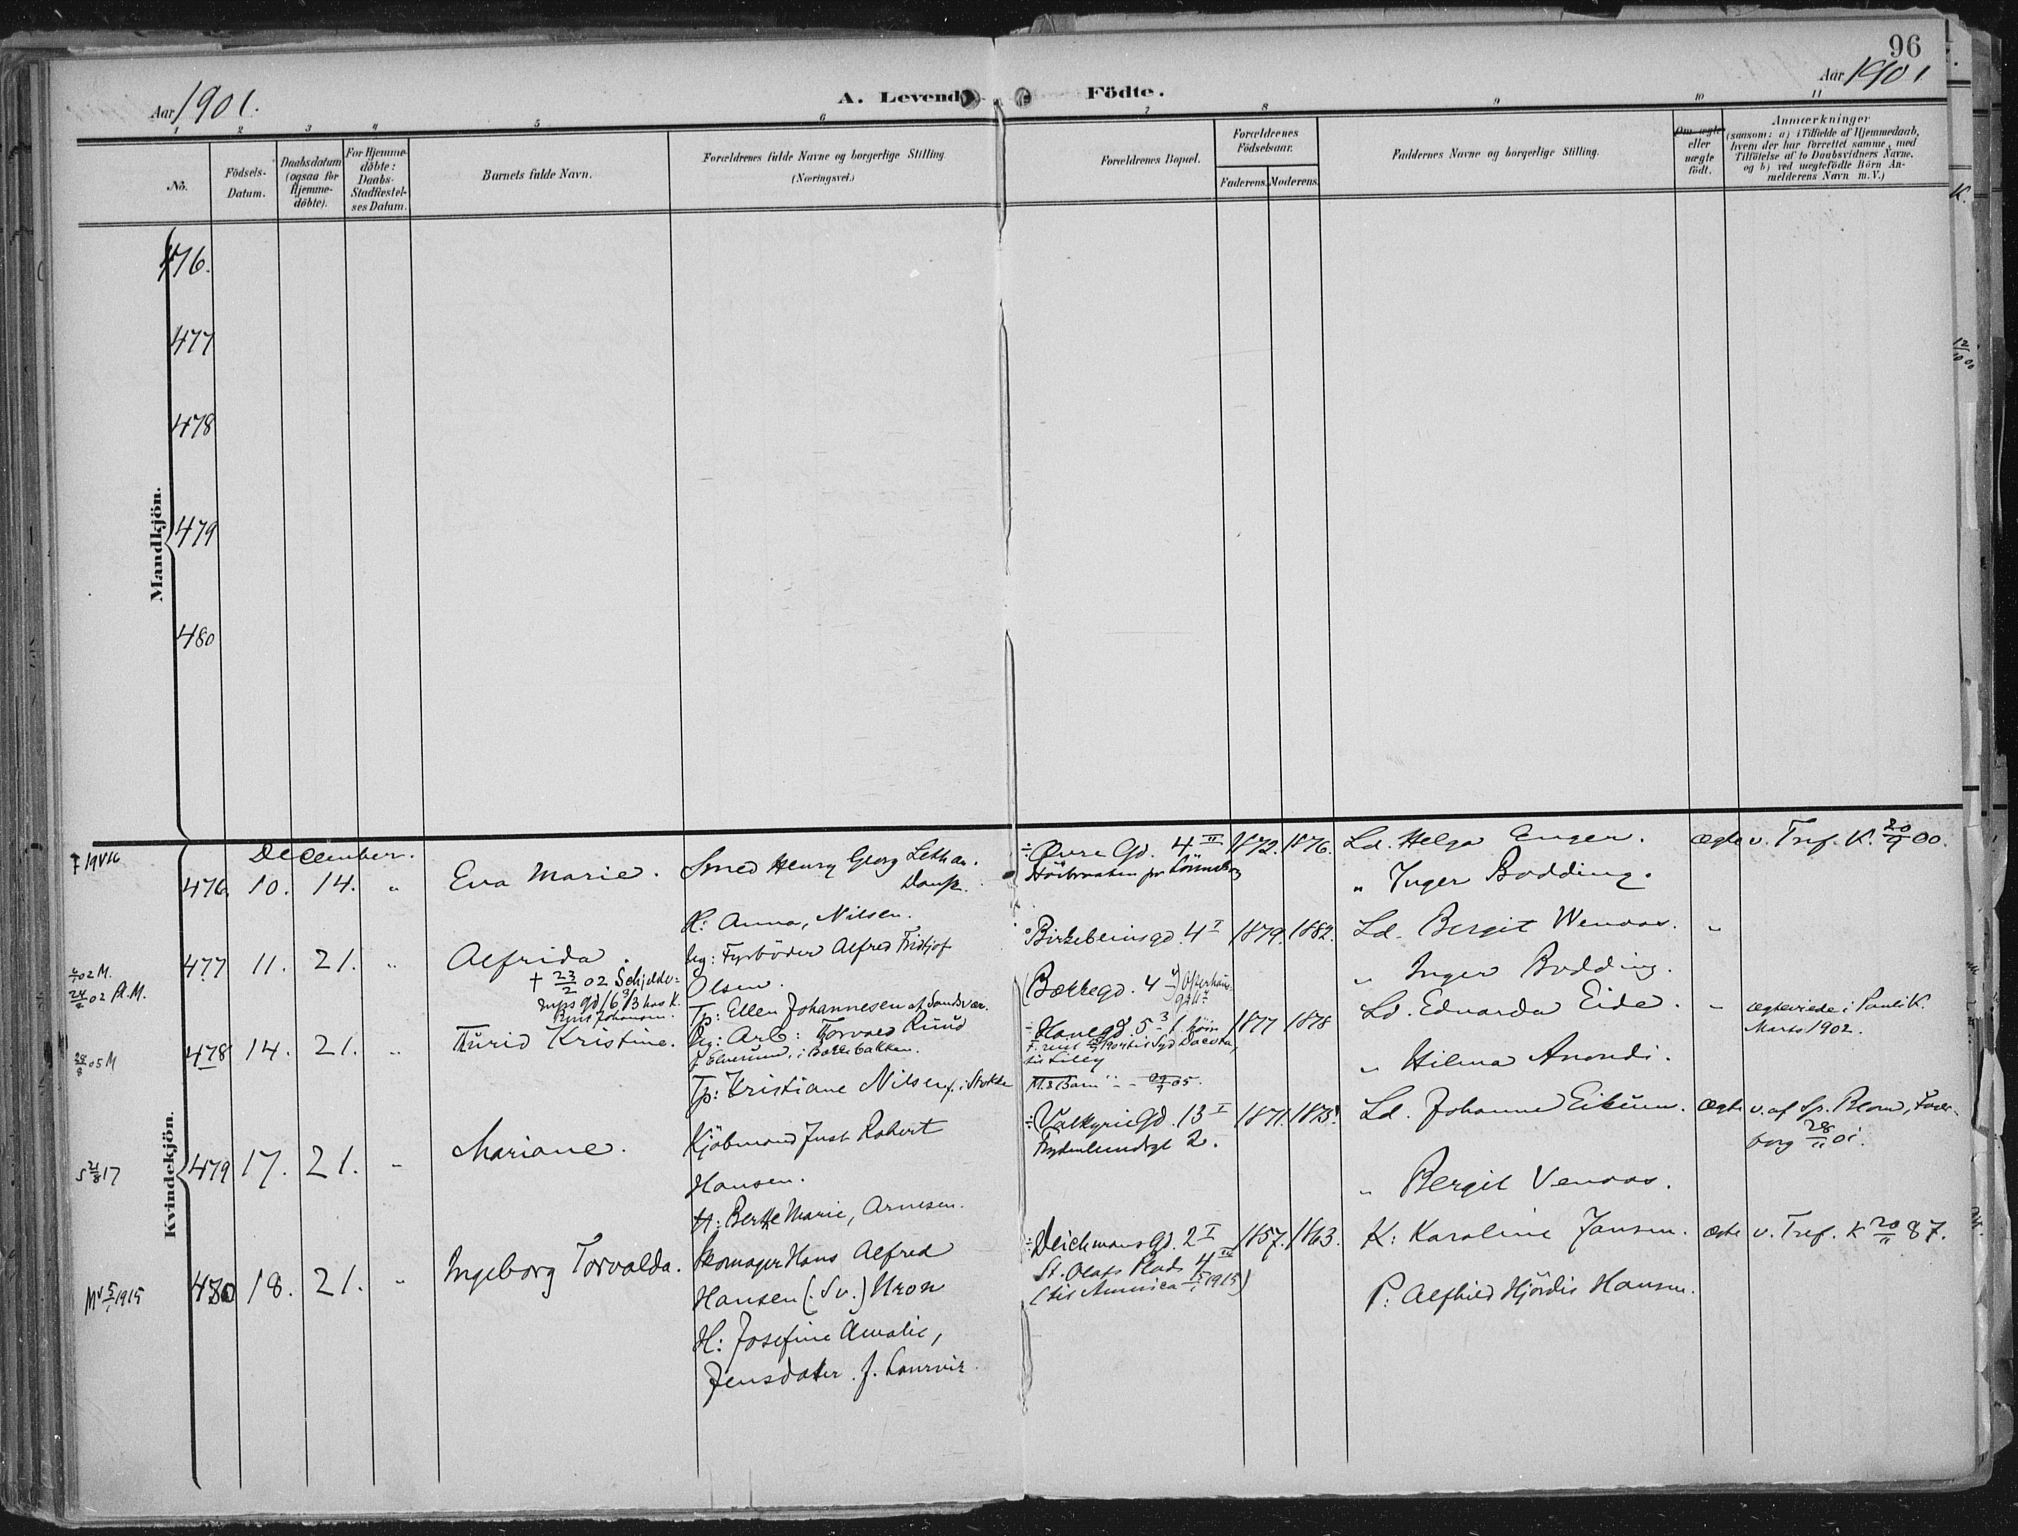 96
Aar 1901.
A. Levende Födte.
Aar 1901
1 2 3 4 5 6 7 8 9 10 11
No.
Födsels-Datum.
Daabsdatum (ogsaa for Hjemme-döbte).
For Hjemme-döbte: Daabs-Stadfæstel-ses Datum.
Barnets fulde Navn.
Forældrenes fulde Navne og borgerlige Stilling
(Næringsvei.)
Forældrenes Bopæl.
Forældrenes Födselsaar.
Faderens. Moderens.
Faddernes Navne og borgerlige Stilling.
Om ægte eller uægte födt.
Anmærkninger
(saasom: a) i Tilfælde af Hjemmedaab,
hvem der har forrettet samme, med
Tilföielse af to Daabsvidners Navne.
og b) ved uægtefödte Börn An-
melderens Navn m. V.)
Mandkjön.
476.
477
478
479
480
Kvindekjön.
December.
476. 10. 14. „ Eva Marie.
Smed Henry Georg
Dansk.
H: Anna, Nilsen.
÷ Øvre Gd. 4 II
1872. 1876.
Ld. Helga Enger.
„ Inger Bodding.
ægte v. Tref. K. 20/9 00.
477 11. 21. „ Alfrida.
+ 23/2 02
Ug: Fyrböder Alfred Fridtjof
Olsen.
Tp: Ellen Johannesen
Birkebeinsgd. 4 I
Bakkegd. 4
1879. 1882.
Ld. Bergit Wenaas.
„ Inger Bodding.
„
24/2 02
478 14. 21. „ Turid Kristine.
Ug: Arb: Torvald Ruud
f. Elverum, i Bakkebakken.
Tp: Kristiane Nilsen
Hanegd. 5
1877 1878
Ld. Eduarda Eide.
„ Hilma Amondi.
„ ægteviede i Pauli K.
Marts 1902.
28/8 05 M
479 17. 21. „ Mariane.
Kjöbmand Just Robert
Hansen.
H: Berthe Marie, Arnesen.
÷ Valkyrie Gd. 13 I
Frydenlundsgt 2.
1871. 1875.
Ld. Johanne Eikum.
„ Bergit Venaas.
Ægte v. af Sp. Blom,
28/11 01.
480 18. 21. „ Ingeborg Torvalda.
Skomager Hans Alfred
Hansen (Sv.)
H: Josefine Amalie,
Jensdatter f. Laurvik
÷ Deichmans Gd. 2 I
St. Olafs Plads 4
(til Amerika 1915)
1857. 1863.
K: Karoline Jansen.
P: Alfhild Hjördis Hansen.
Ægte v. Tref. K 20/11 87.
M v 5/1 1915